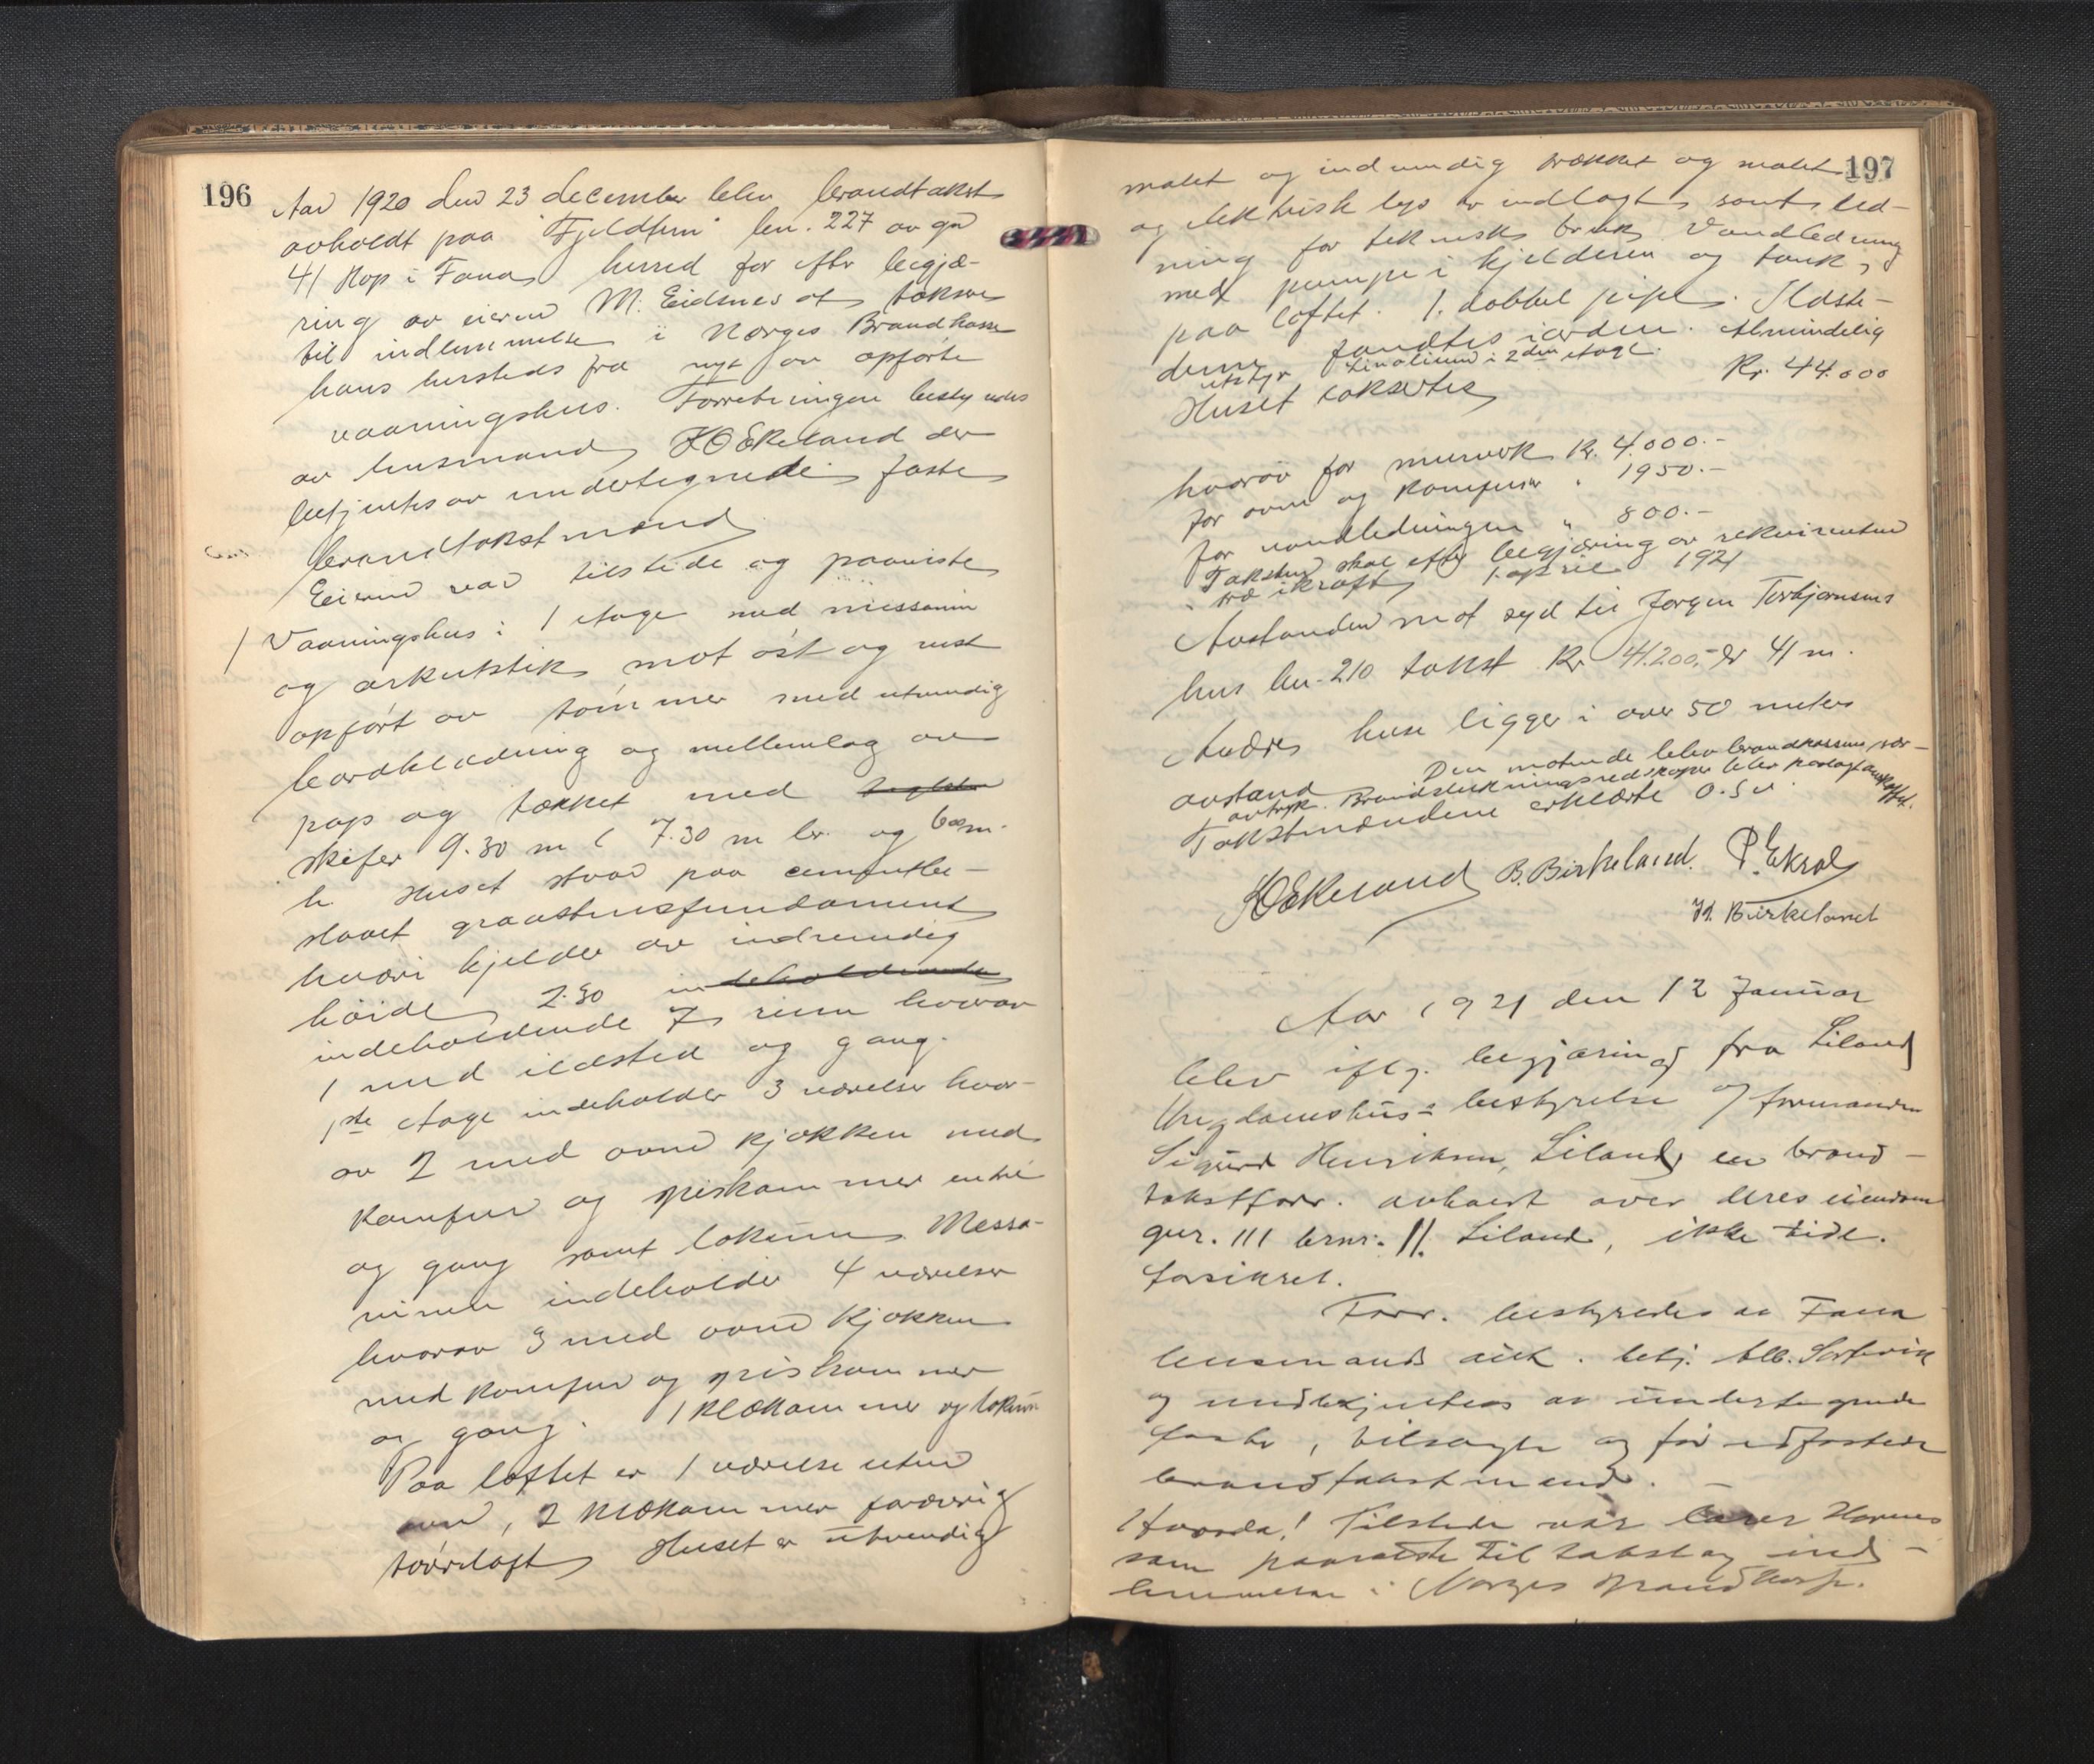 196
Aar 1920 den 23 december blev brandtakst
avholdt paa "Fjeldtun" bn. 227 av gn
41 Hop i Fana herred for efter begjæ-
ring av eieren M. Eidsnes at taksere
til indlemmelse i Norges Brandkasse
hans hersteds fra nyt av opførte
vaaningshus. Forretningen bestyredes
av lensmand H O Ekeland der
betjentes av undertegnede faste
brandtakstmænd
Eieren var tilstede og paaviste
1 Vaaningshus: 1 etage med messanin
og arkutstik mot øst og vest
opført av tømmer med utvendig
bordklædning og mellemlag av
pap og tækket med
skifer 9.30 m l 7.30 m br. og 6 m.
h. Huset staar paa cementbe-
slaaet graastensfundament
hvori kjelder av indvendig
høide 2.30 indeholdende
indeholdende 7 rum hvorav
1 med ildsted og gang.
1ste etage indeholder 3 værelser hvor-
av 2 med ovne kjøkken med
komfur og spiskammer entre
og gang samt lokum. Messa-
ninen indeholder 4 værelser
hvorav 3 med ovne kjøkken
med komfur og spiskammer
og gang. 1 klækammer og lokum
Paa loftet er 1 værelse uten
ovn, 2 klækammer forøvrig
tørreloft Huset er utvendig
197
malet og indvendig trækket og malet
og elektrisk lys er indlagt samt led-
ning for teknisk bruk. Vandledning
med pumpe i kjelderen og tank
paa loftet. 1. dobbel pipe. Ildste-
dene fandtes iorden. Almindelig
utstyr Linolium i 2den etage.
Huset taksertes Kr. 44.000
hvorav for murverk Kr. 4.000.-
for ovne og komfurer " 1950.-
for vandledningen " 800.-
Taksten skal efter begjæring av rekvirenten
træ ikraft 1. april 1921
Avstanden mot syd til Jørgen Torbjørnsens
hus bn. 210 takst Kr. 41.200,- er 41 m.
Andre huse ligger i over 50 meters
avstand Den møtende blev brandkassens sær-
avtryk. Brandslukningsredskaper blev paalagt anskaffet.
Takstmændene erklærte O.S.V.
H O Ekeland B. Birkeland. P. Ekrol
H. Birkeland
Aar 1921 den 12 Januar
blev iflg. begjæring fra Liland
Ungdomshus's bestyrelse v/ formanden
Sigurd Henriksen, Liland en brand-
takstforr. avholdt over deres eiendom
gnr. 111 brnr. 11. Liland, ikke tidl.
forsikret.
Forr. bestyredes av Fana
lensmands aut. betj. Alb.
og medbetjentes av undertegnede
faste, tilsagte og før edfæstede
brandtakstmænd. -
Hvorda! Tilstede var lærer
som paaviste til takst og ind-
lemmelse i Norges Brandkasse.